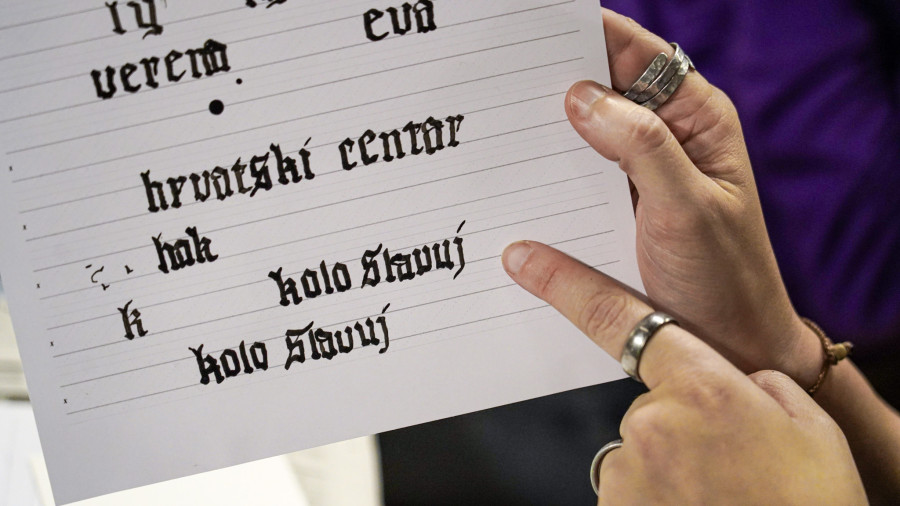 eva
verena
hrvatski centar
hak
kolo Slavuj
k
kolo Slavuj